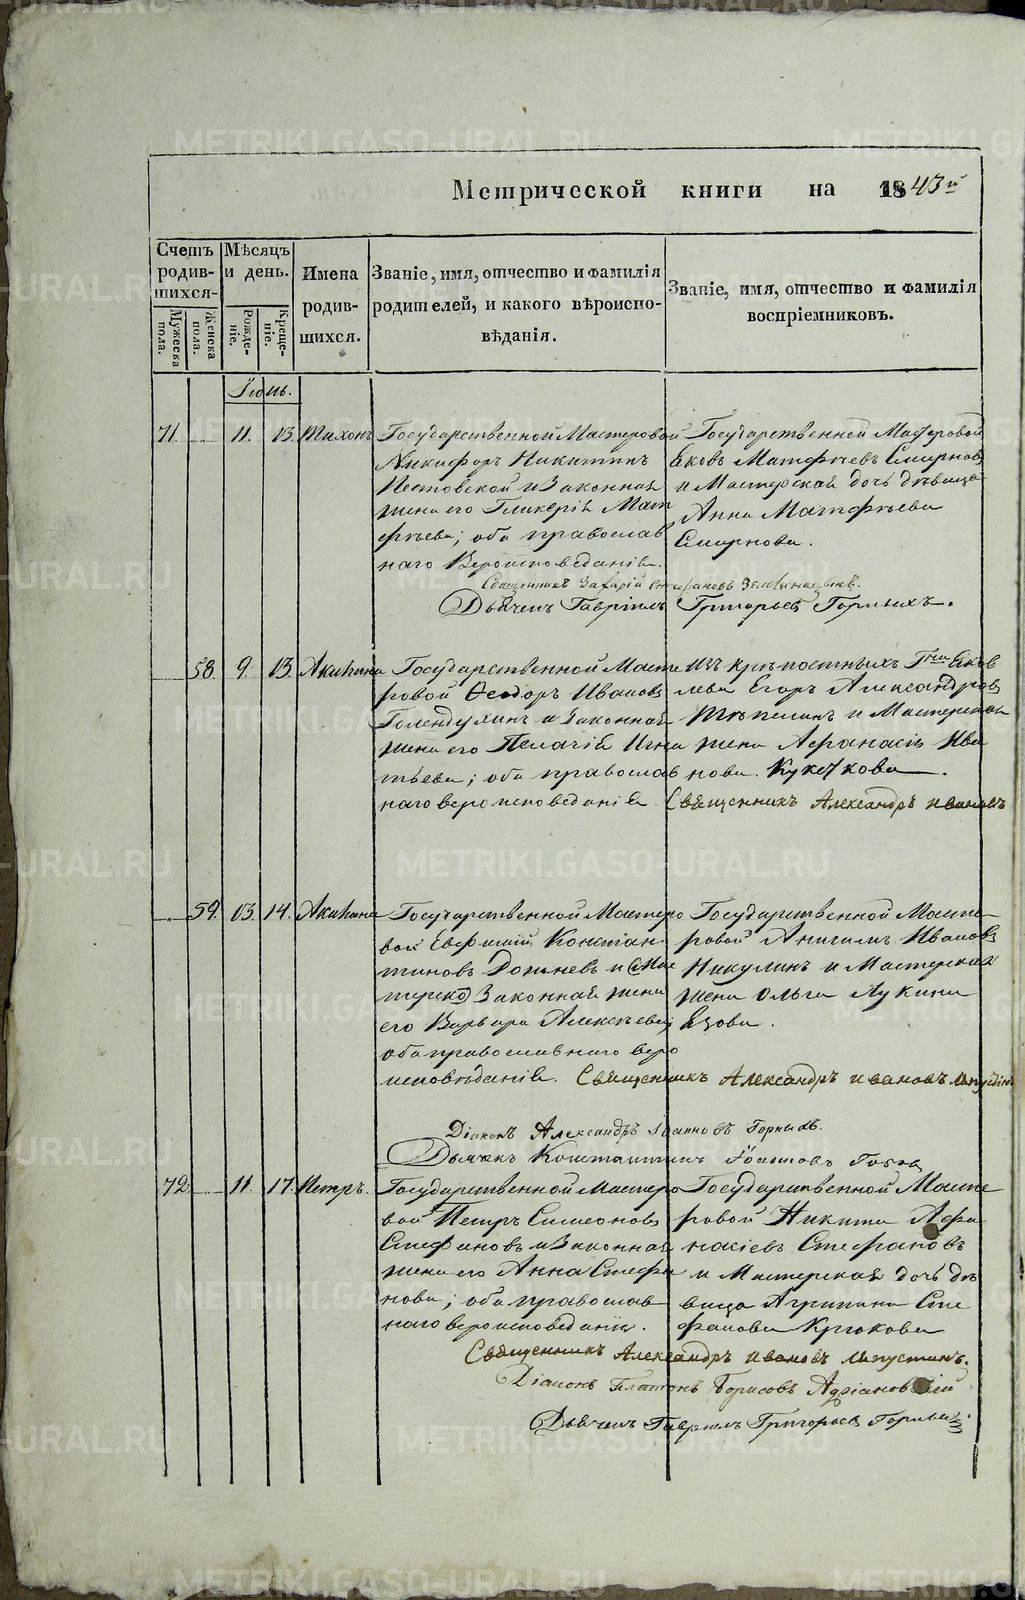 Метрической книги на 1843й
Счетъ родив-шихся.
Мужеска пола.
Женска пола.
Мѣсяцъ и день.
Рожде-ніе.
Креще-ніе.
Имена родив-шихся.
Званіе, имя, отчество и фамилія родителей, и какого вѣроиспо-вѣданія.
Званіе, имя, отчество и фамилія воспріемниковъ.
Іюнь.
71. 11. 13. Тихонъ
Государственной Мастеровой
Никифоръ Никитинъ
и Законная
жена его Гликерія Мат
фѣева; оба православ
наго Вероисповеданія.
Государственной Мастеровой
Яковъ Матфѣевъ Смирновъ
и Мастерская дочь дѣвица
Анна Матфѣева
Смирнова.
Священникъ Захарій Стефановъ
Дьячекъ Гавріилъ Григорьевъ Горныхъ.
58. 9. 13. Акилина
Государственной Масте
ровой Ѳеодоръ Ивановъ
Голендухинъ и Законная
жена его Пелагія Игна
тьева; оба православ
наго вероисповеданія.
Изъ крѣпостныхъ Гна Яков
лева Егоръ Александровъ
и Мастерская
жена Афанасія Ива
нова
Священникъ Александръ Ивановъ
59. 13. 14. Акилина
Государственной Мастеро
вой Евфимій Констан
тиновъ и Мас
терско Законная жена
его Варвара Алексѣева;
оба православнаго веро
исповѣданія.
Государственной Масте
ровой Ивановъ
Никулинъ и Мастерская
жена Ольга Лукина
Язова.
Священникъ Александръ Ивановъ Лапустинъ
Діаконъ Александръ Іоанновъ Горныхъ.
Дьячекъ Константинъ Іоанновъ
72. 11. 17. Петръ.
Государственной Мастеро
вой Петръ Симеоновъ
Стефановъ и Законная
жена его Анна Стефа
нова; оба православ
наго вероисповеданія.
Государственной Масте
ровой Никита Афа
насіевъ Стефановъ
и Мастерская дочь дѣ
вица Агрипина Сте
фанова Крюкова
Священникъ Александръ Ивановъ Лапустинъ.
Діаконъ Платонъ Борисовъ Адріановскій
Дьячекъ Гавріилъ Григорьевъ Горныхъ.
METRIKI.GASO-URAL.RU